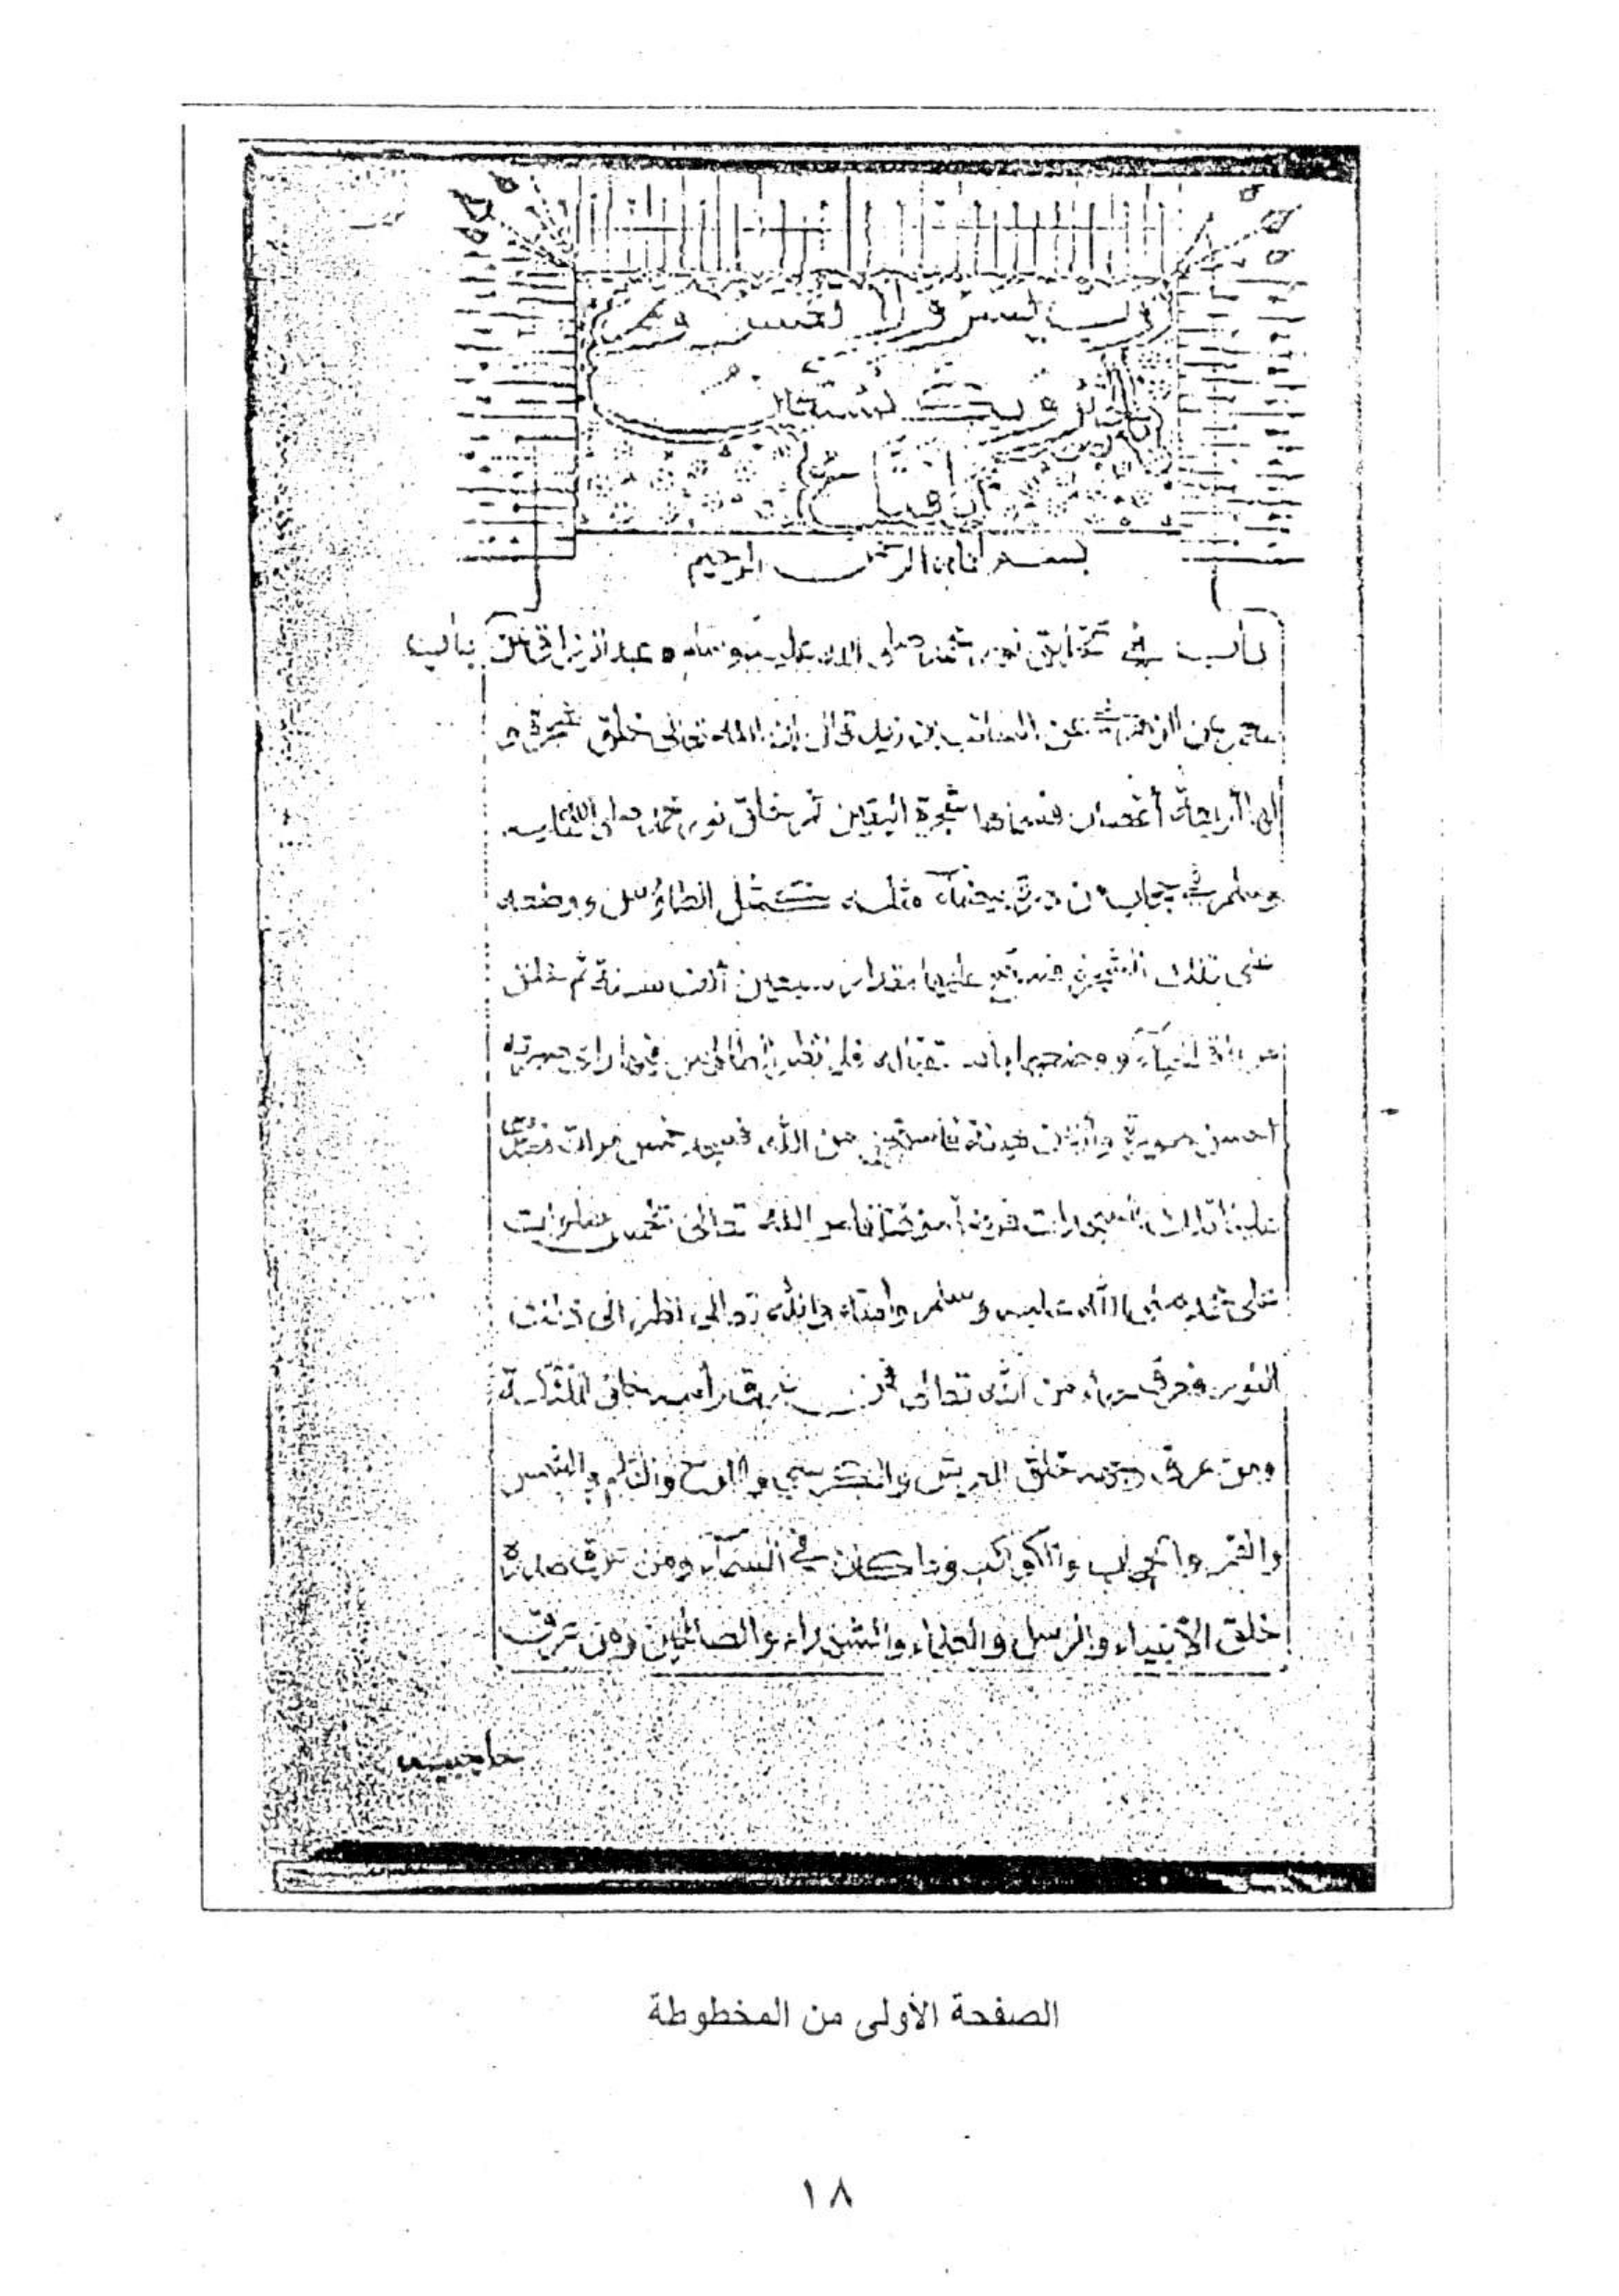 رب يسر ولا تعسر و
وبك نستعين
يا فتاح
بسم الله الرحمن الرحيم
باب في تخليق نور محمد صلى الله عليه وسلم عبد الرزاق عن
معمر عن الزهري عن السائب بن زيد قال إن الله تعالى خلق شجرة و
لها أربعة أغصان فسماها شجرة اليقين ثم خلق نور محمد صلى الله عليه
وسلم في حجاب من درة بيضاء مثله كمثل الطاؤس ووضعه
على تلك الشجرة فسبح عليها مقدار سبعين ألف سنة ثم خلق
مرآة الحياء ووضعها باستقباله فلما نظر الطاؤس فيها رأى صورته
أحسن صورة وأزين هيئة فاستحى من الله فسجد خمس مرات
علينا تلك السجدات فرضا مؤقتا فأمر الله تعالى خمس صلوات
على محمد صلى الله عليه وسلم وأمته والله تعالى نظر إلى ذلك
النور فعرق حياء من الله تعالى فمن عرق رأسه خلق الملائكة
ومن عرق وجهه خلق العرش والكرسي واللوح والقلم والشمس
والقمر والحجاب والكواكب وما كان في السماء ومن عرق صدره
خلق الأنبياء والرسل والعلماء والشهداء والصالحين ومن عرق
حاجبيه
الصفحة الأولى من المخطوطة
١٨